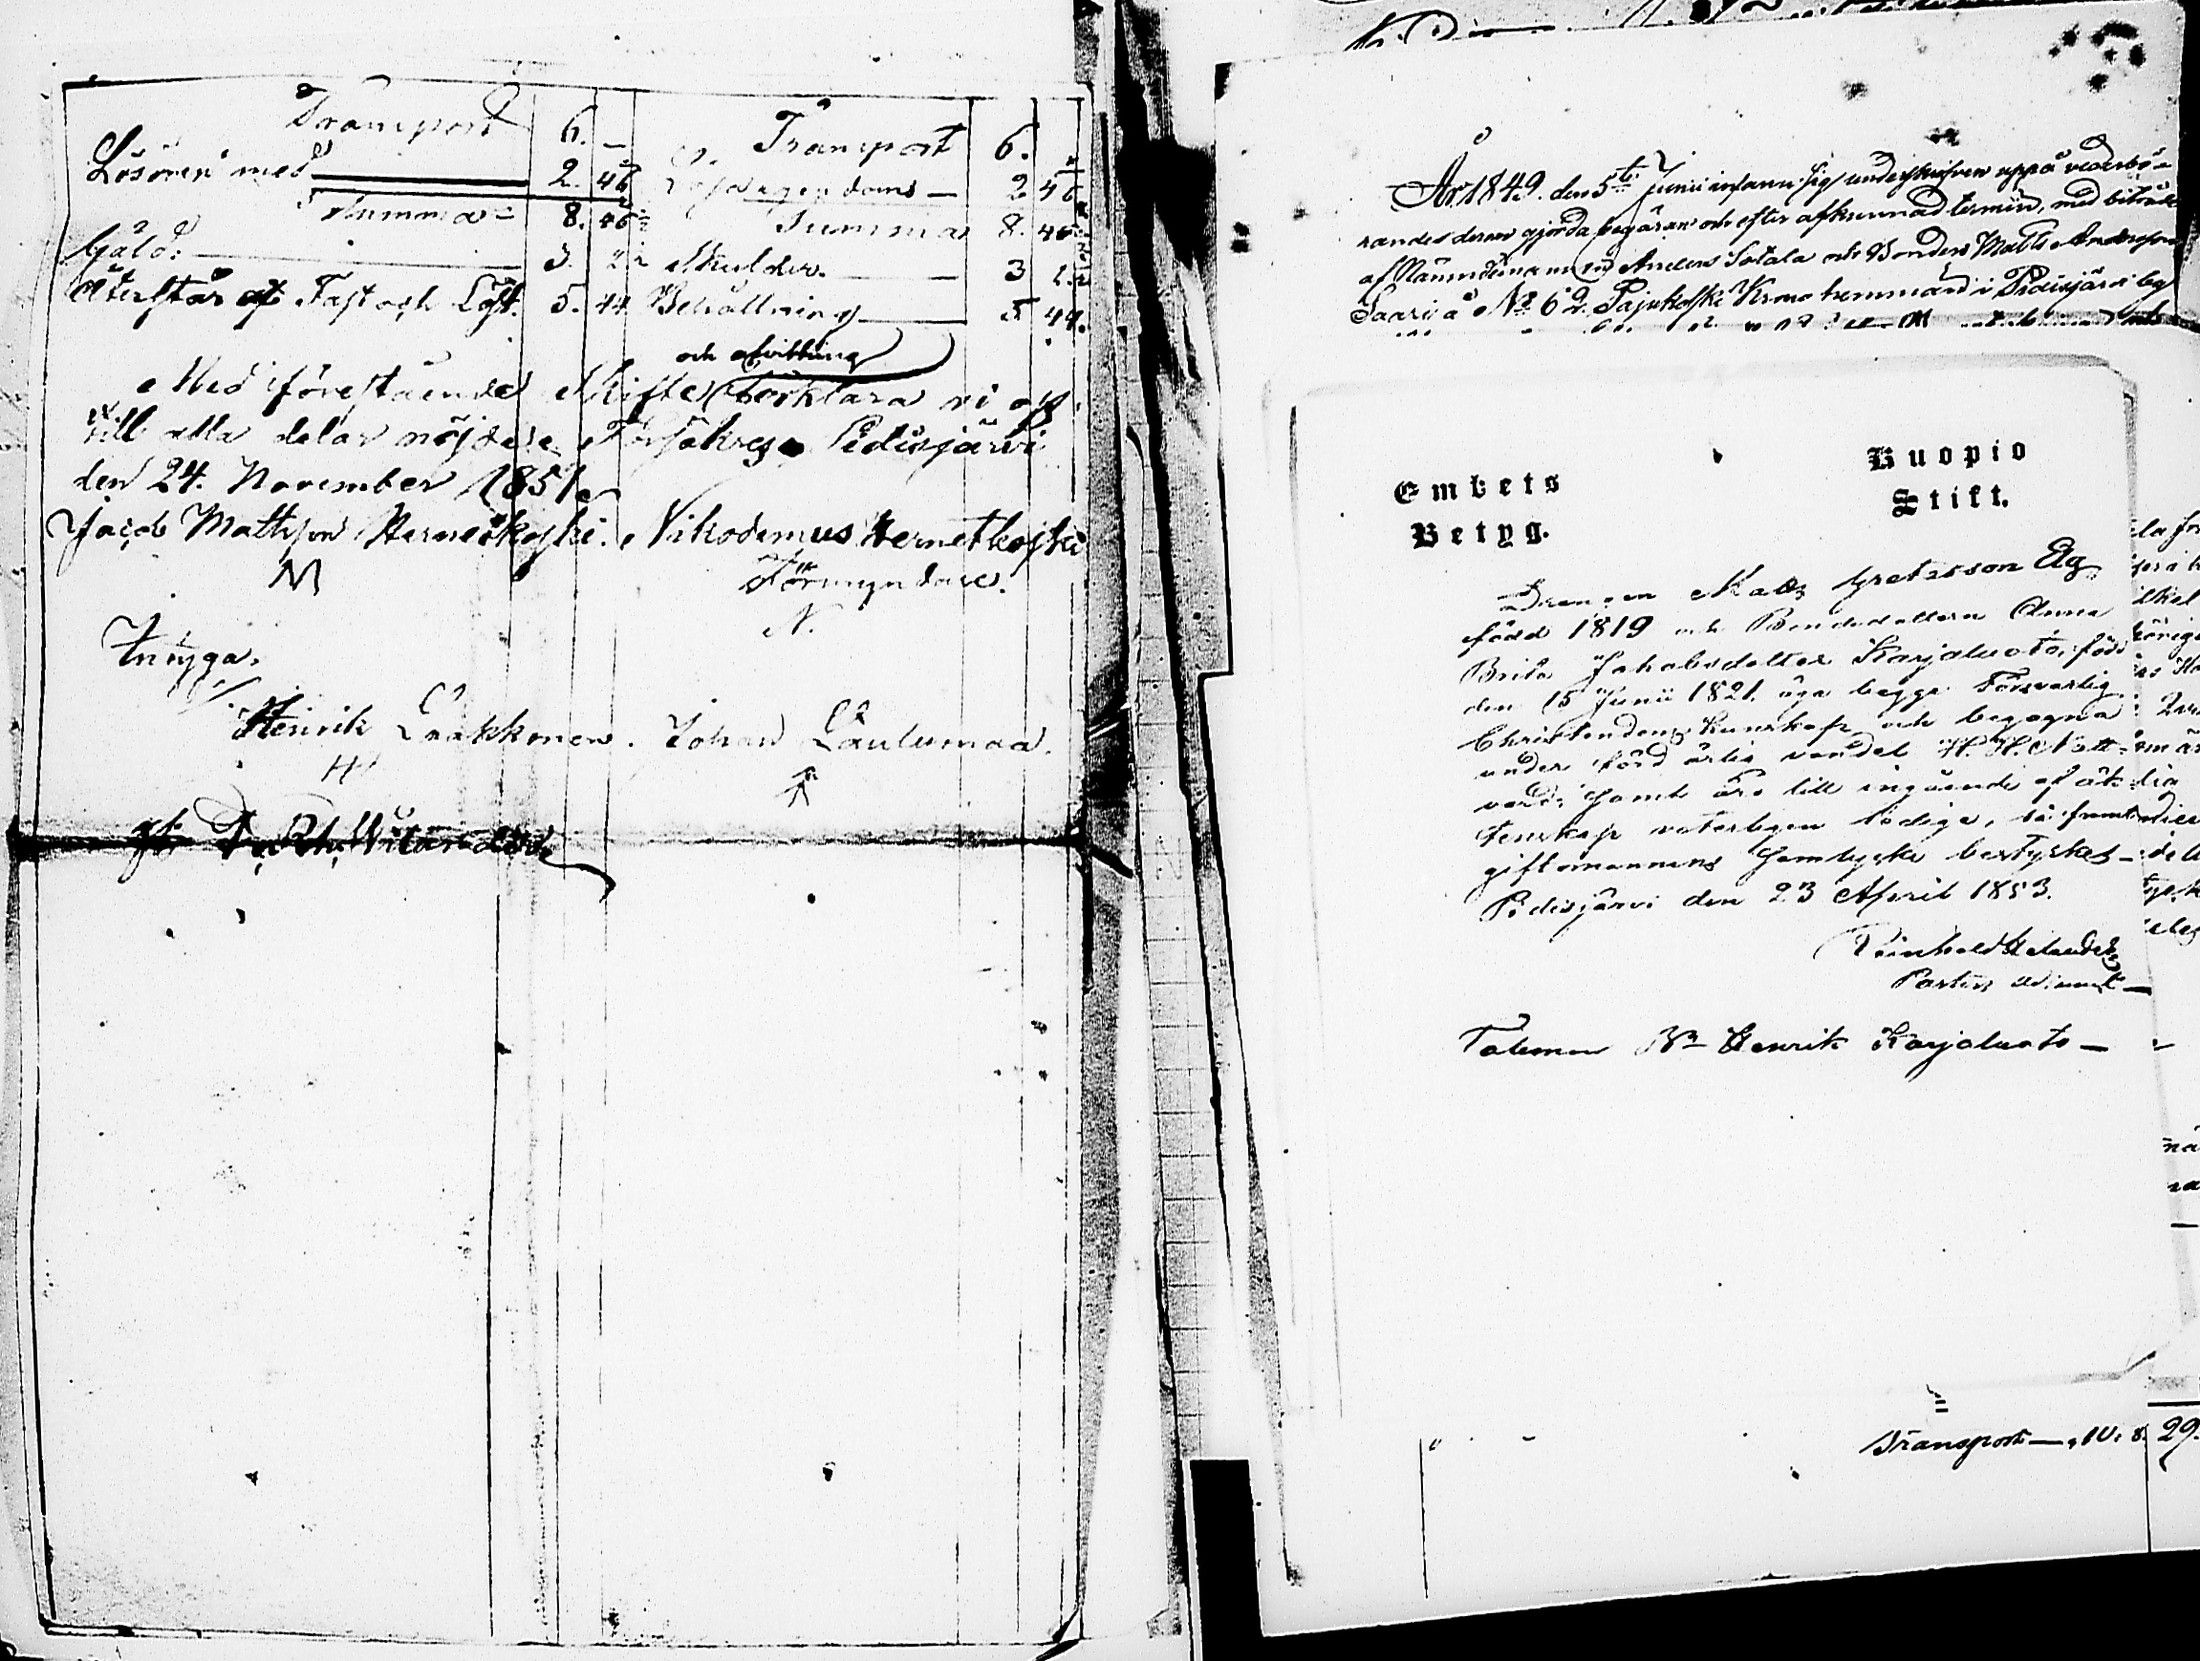 Transport 6. — Transport 6. —
Lösören med 2. 46 Lösa egendoms — 2 46
Summa 8. 46 Summa 8. 46
Gäld: 3. 2 Skulder — 3 2
Återstår af Fast och Löst. 5. 44 Behållning 5 44.
och afvittring
Med förestående Skifte förklara vi oss
till alla delar nöjde, Försäkras Pidisjärvi
den 24. November 1851.
Jacob Mattsson Herneskoski. Nikodemus Hernetkoski
M Förmyndare.
N.
Intyga,
Henrik Laakkonen. Johan Laulumaa.
H
År 1849. den 5te Junii infann sig undertecknad uppå vederbö-
randes derom gjorda begäran och efter afkunnad termin, med biträde
af Nämndemannen Anders Sotala och Bonden Matts Andersson
Saari å № 62 Pajukoski Kronohemman i Pidisjärvi by
Embets
Betyg.
Kuopio
Stift.
Drengen Matts Gretasson Elg
född 1819 och Bondedottern Anna
Brita Jakobsdotter Karjaluoto, född
den 15 Junii 1821. äga begge Försvarlig
Christendoms Kunskap och begagna
under förd ärlig vandel H. H. Natt-
vard; samt äro till ingående af äk-
tenskap veterligen ledige, så framt
giftomannens Samtycke bestyrkes —
Pidisjärvi den 23 April 1853.
Reinhold Helander
Pastors Adjunct —
Taleman Bn Henrik Karjaluoto —
Transport — 10. 8. 29.